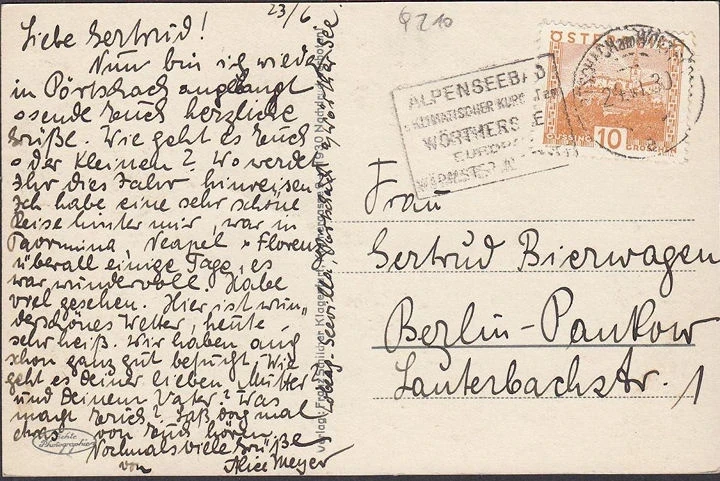 23/6
Liebe Gertrud!
Nun bin ich wieder
in Pörtschach angelangt
sende Euch herzliche
Grüße. Wie geht es Euch
der Kleinen? Wo werdet
Ihr dies Jahr hinreisen
Ich habe eine sehr schöne
Reise hinter mir, war in
Taormina, Neapel Florenz
überall einige Tage, es
war wundervoll. Habe
viel gesehen. Hier ist wun„
derschönes Wetter, heute
sehr heiß. Wir haben auch
schon ganz gut besucht, Wie
geht es deiner lieben Mutter
und deinem Vater? Was
macht Erich? Laß doch mal
etwas von Euch hören,
Nochmals viele Grüße
von Alice Meyer
Pörtschach Wörther See
Verlag: Franz Schilcher, Klagenfurt
1930
Echte
Photographie
ALPENSEEBAD
KLIMATISCHER KURORT am
WÖRTHERSEE
EUROPAS
WÄRMSTER
ÖSTERREICH
GÜSSING
10
GROSCHEN
Frau
Gertrud Bierwagen
Berlin-Pankow
Lauterbachstr. 1